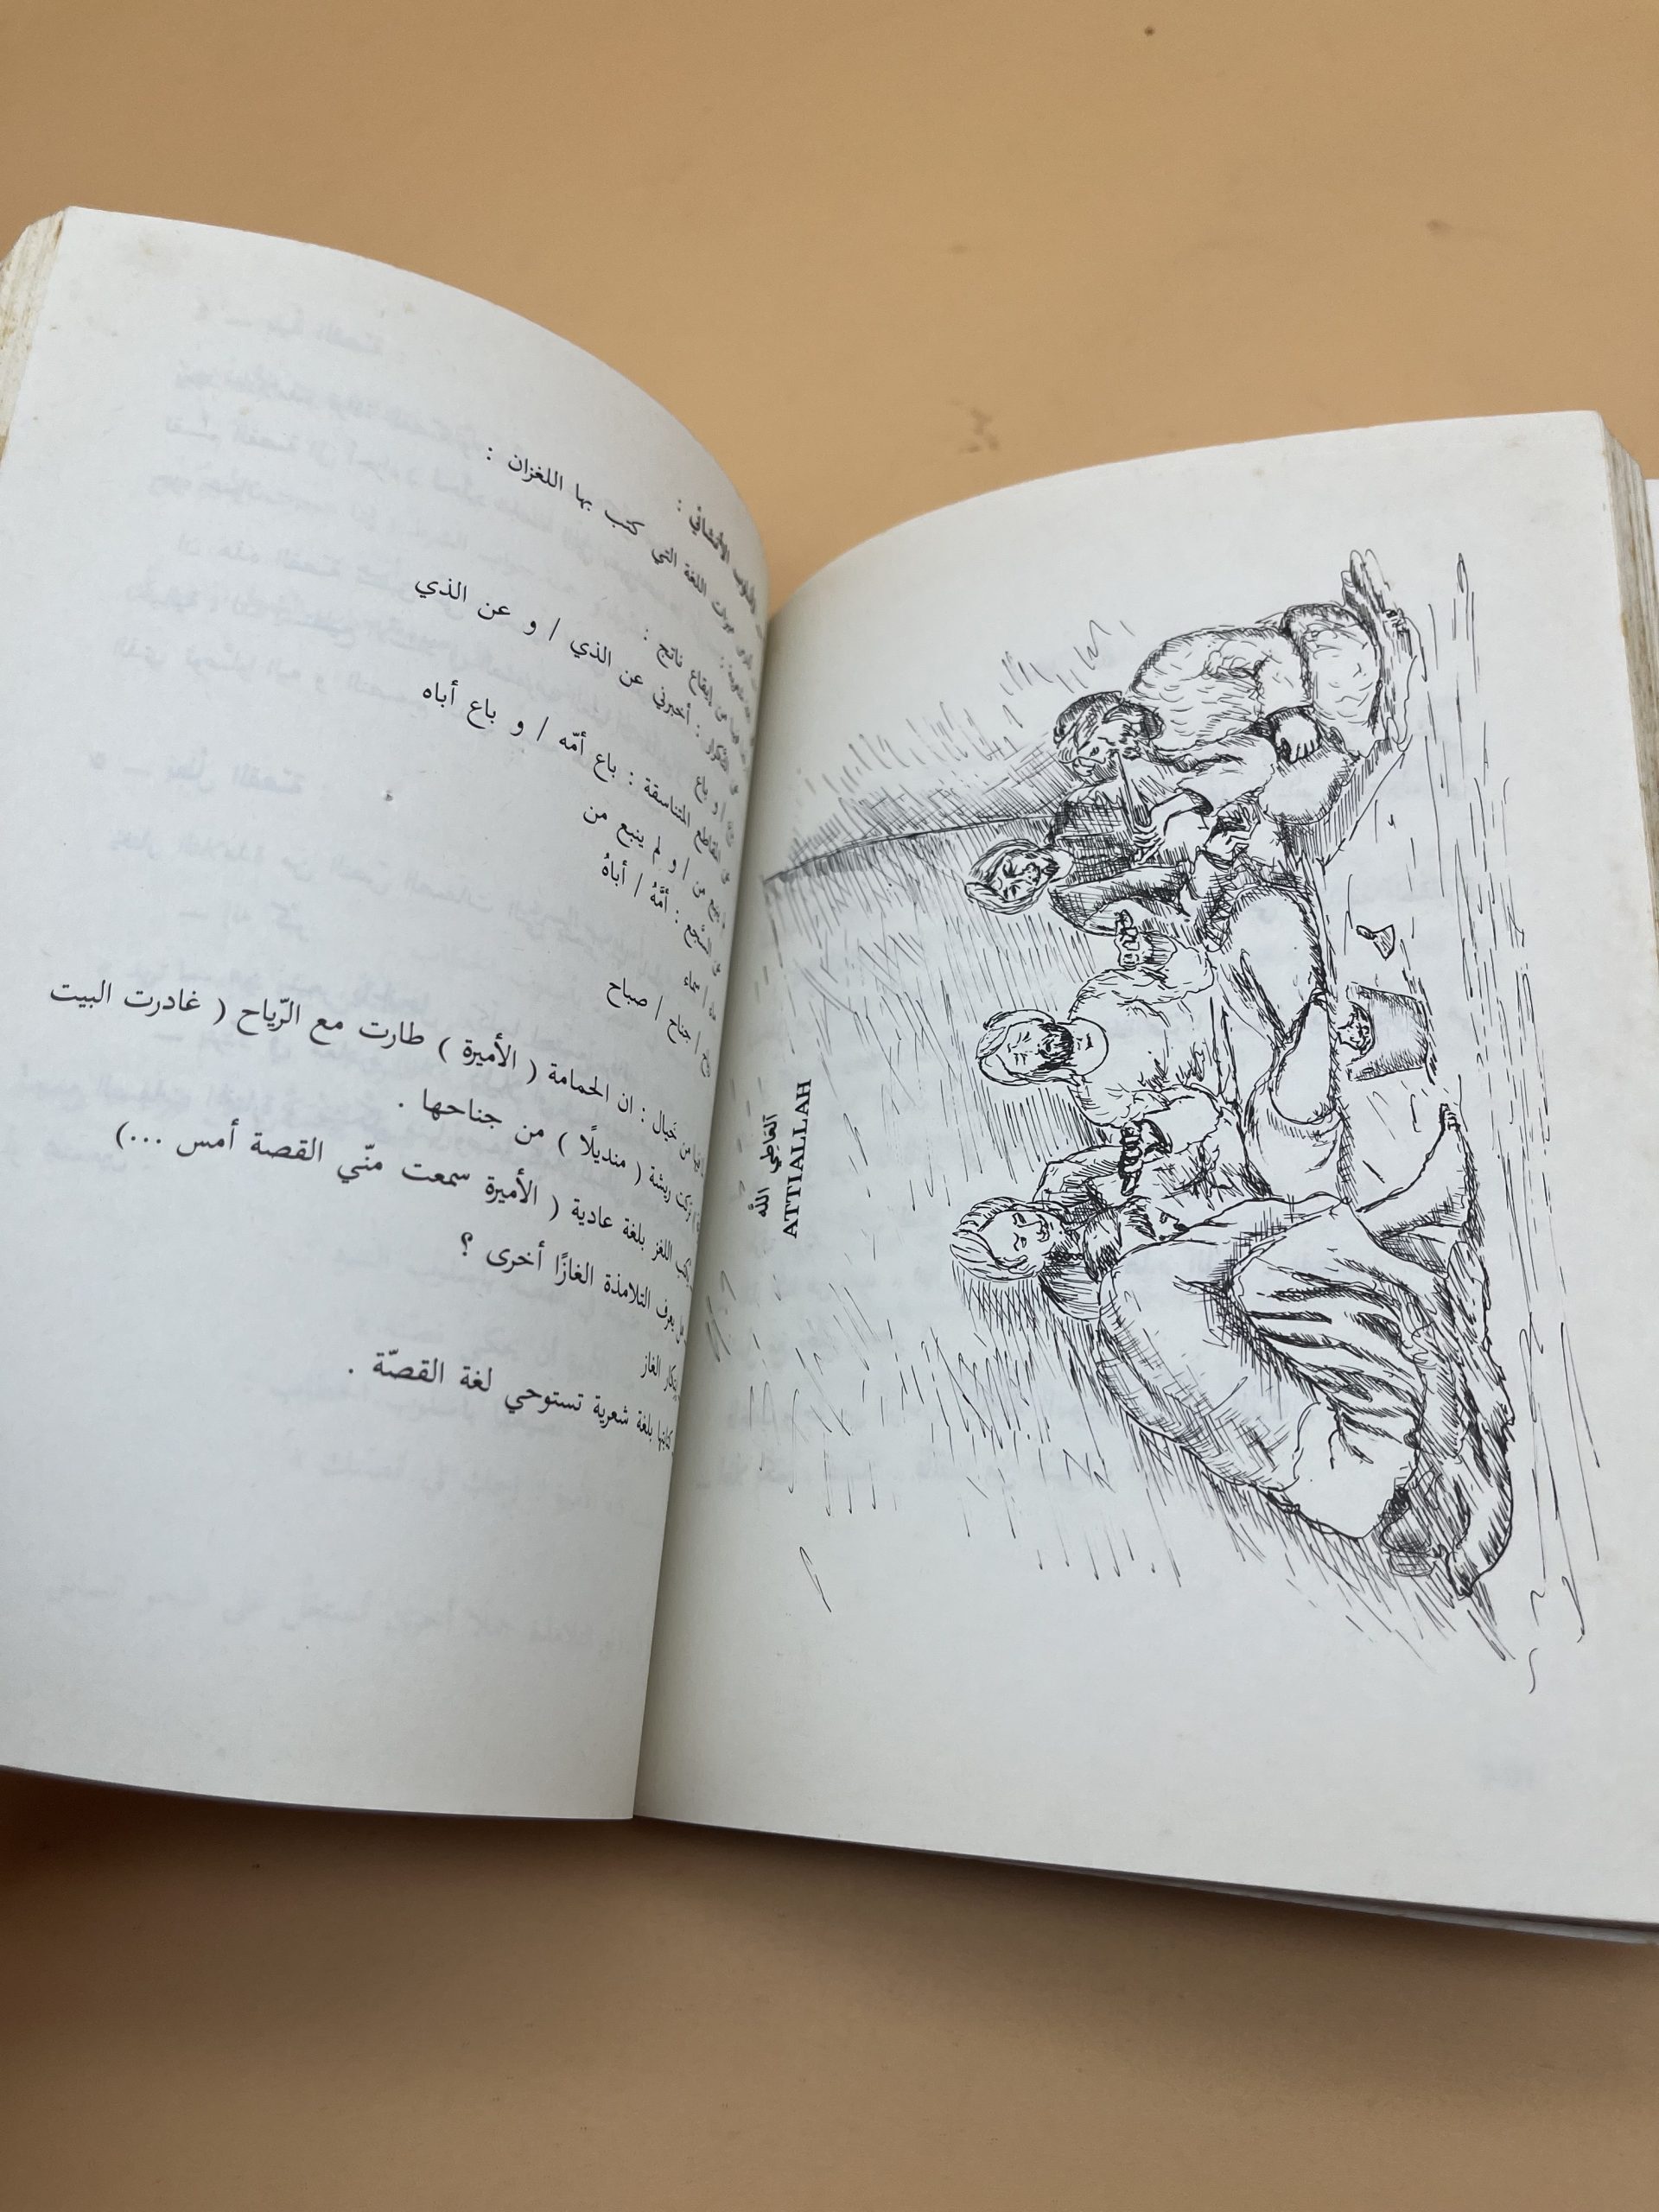 الأنشائي :
اللغة التي كتب بها اللغزان :
إيقاع ناتج :
التكرار : أخبرني عن الذي / و عن الذي
/ و باع
المقاطع المتناسقة : باع أمّه / و باع أباه
من / و لم ينبع من
السّجع : أمَّهُ / أباهُ
/ سماء
/ جناح / صباح
من خيال : ان الحمامة ( الأميرة ) طارت مع الرّياح ( غادرت البيت
ريشة ( منديلًا ) من جناحها .
اللغز بلغة عادية ( الأميرة سمعت منّي القصة أمس ...)
يعرف التلامذة الغازًا أخرى ؟
الغاز
بلغة شعرية تستوحي لغة القصّة .
الله
ATTIALLAH